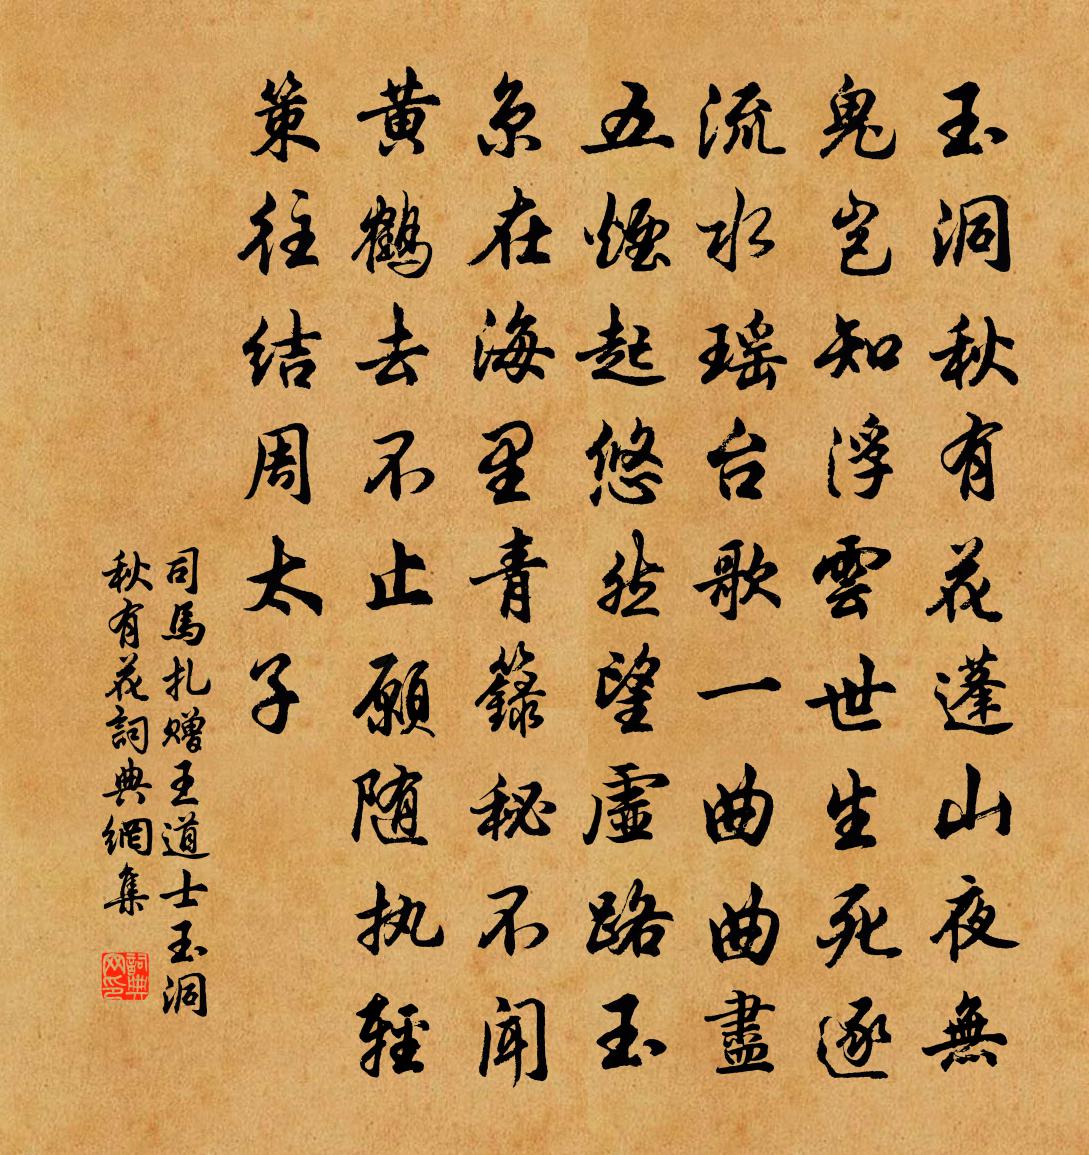 玉洞秋有花蓬山夜無
鬼岂知浮雲世生死逐
流水瑶台歌一曲曲盡
五煙起悠然望虛路玉
京在海里青籙秘不聞
黄鹤去不止願随执輕
策往结周太子
司馬扎赠王道士玉洞
秋有花詞典網集
詞典网印